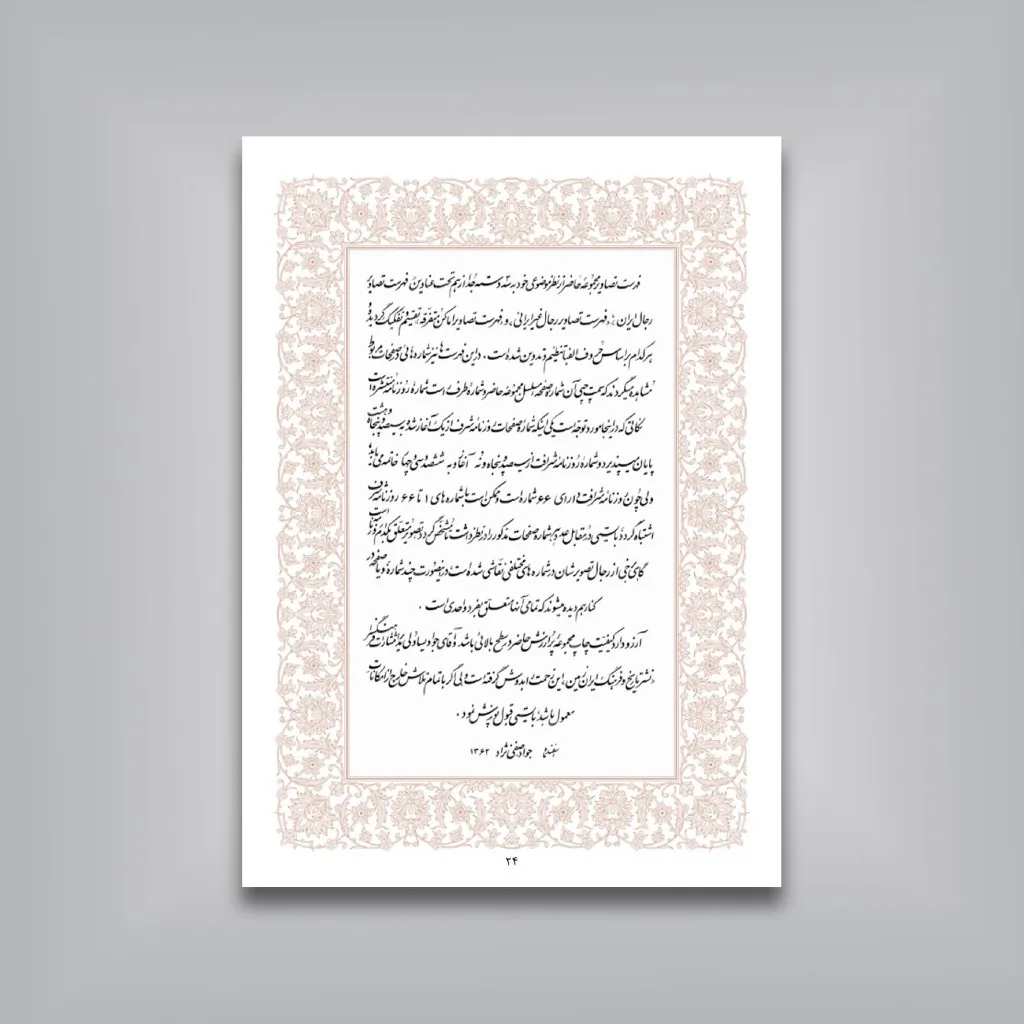 فهرست تصاویر مجموعهٔ حاضر از نظر موضوعی خود به سه دسته جدا از هم تحت عناوین: فهرست تصاویر
رجال ایران، «فهرست تصاویر رجال غیر ایرانی» و «فهرست تصاویر اماکن متفرقه» تقسیم و تفکیک گردیده و
هر کدام بر اساس حروف الفبا تنظیم و تدوین شده است. در این فهرست ها نیز شماره هائی در صفحات مربوط
مشاهده میگردند که سمت چپی آن شماره صفحه مسلسل مجموعه حاضر و شماره طرف است شماره روزنامه منتشره است
نکاتی که در اینجا مورد توجه است یکی اینکه شماره صفحات روزنامه شرف از یک آغاز شده و به سیصد و پنجاه و هشت
پایان میپذیرد و شماره روزنامه شرافت از سیصد و پنجاه و نه آغاز و به ششصد و سی و چهار خاتمه می یابد
ولی چون روزنامه شرافت دارای ۶۶ شماره است و ممکن است با شماره های ۱ تا ۶۶ روزنامه شرف
اشتباه گردد بایستی در مقابل عدد شماره صفحات مذکور را در نظر داشت تا مشخص گردد تصویر متعلق بکدام روزنامه است
گاهی برخی از رجال تصویرشان در شماره های مختلفی نقاشی شده است در اینصورت چند شماره و یا صفحه در
کنار هم دیده میشوند که تمامی آنها متعلق بفرد واحدی است .
آرزو دارد کیفیت چاپ مجموعهٔ پر ارزش حاضر در سطح بالائی باشد و آقای جواد یساولی مدیر انتشارات فرهنگسرا
در نشر تاریخ و فرهنگ ایران زمین، این زحمت را بدوش گرفته است ولی اگر با تمام تلاش خارج از امکانات
معمول باشد بایستی قبول پوزش نمود .
جواد صفی نژاد ۱۳۶۲
۲۴